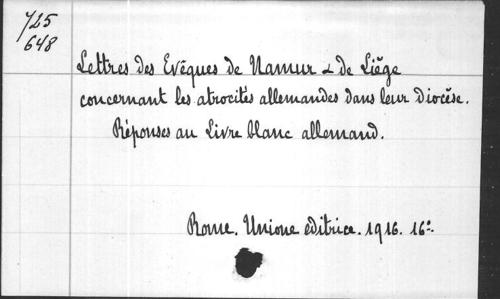 725
648
Lettres des Evêques de Namur & de Liége
concernant les atrocités allemandes dans leur diocèse.
Réponses au Livre blanc allemand.
Rome. Unione editrice. 1916. 16º.